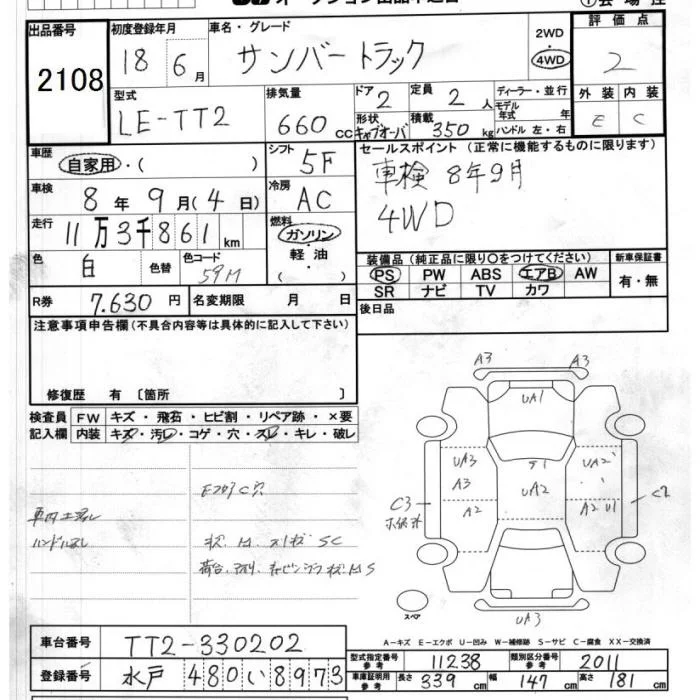 出品番号
2108
初度登録年月
18 6月
車名・グレード
サンバートラック
2WD
4WD
評価点
2
型式
LE-TT2
排気量
660 cc
ドア
2
定員
2 人
ディーラー・並行
モデル年式 年
ハンドル 左・右
形状
キャブオーバ
積載
350 kg
外装 内装
E C
車歴
自家用・( )
シフト
5F
セールスポイント (正常に機能するものに限ります)
車検 8年9月
4WD
車検
8年 9月(4日)
冷房
AC
走行
11万3千861km
燃料
ガソリン
軽油
( )
色
白
色替
色コード
59M
装備品 (純正品に限り〇をつけてください)
新車保証書
PS PW ABS エアB AW
有・無
SR ナビ TV カワ
R券
7.630 円
名変期限 月 日
後日品
注意事項申告欄 (不具合内容等は具体的に記入して下さい)
修復歴 有 〔箇所 〕
検査員記入欄
FW キズ・飛石・ヒビ割・リペア跡・×要
内装 キズ・汚レ・コゲ・穴・スレ・キレ・破レ
A3 A3
UA1
UA3 UA2
A3
UA2
A2 A2 U1
C3 C2
スペア
UA3
A-キズ E-エクボ U-凹み W-補修跡 S-サビ C-腐食 XX-交換済
車台番号
TT2-330202
型式指定番号 参考
11238
類別区分番号 参考
2011
登録番号
水戸 480 い 8973
車庫証明用 参考
長さ 339 cm
幅 147 cm
高さ 181 cm